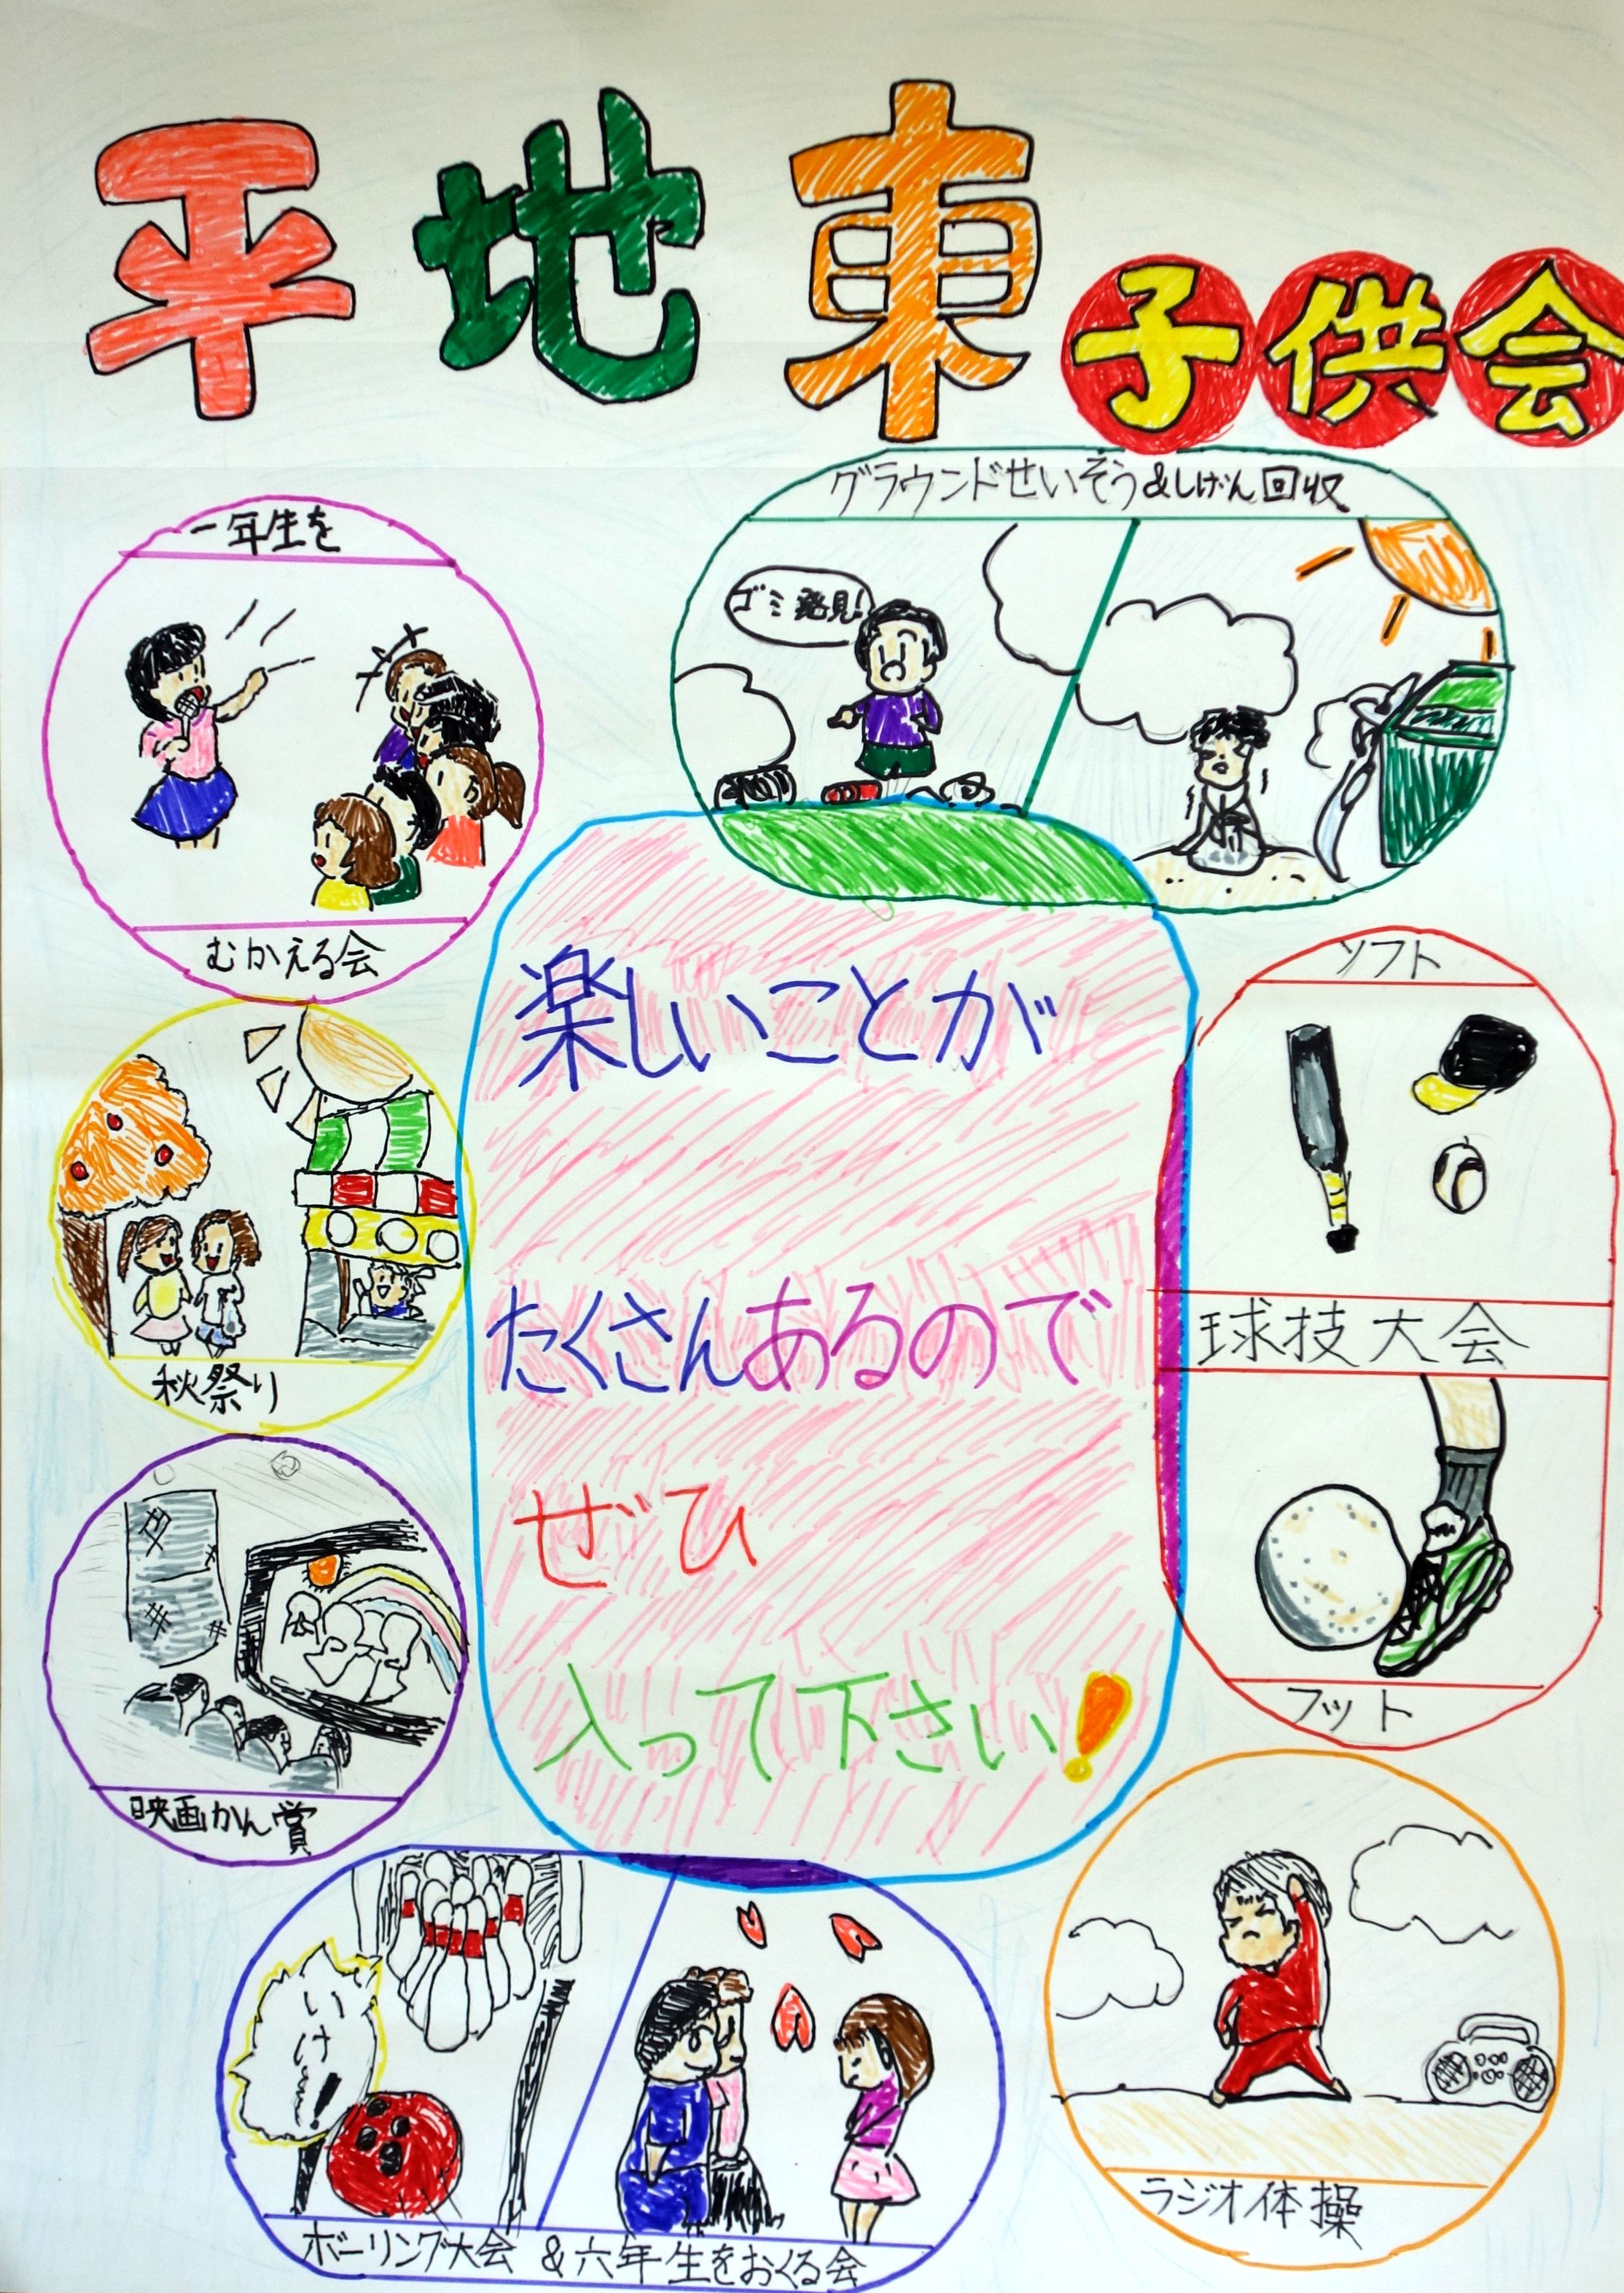 平地東子供会
グラウンドせいそう&しげん回収
ゴミ発見!
一年生を
むかえる会
楽しいことが
たくさんあるので
ぜひ
入って下さい!
ソフト
球技大会
フット
秋祭り
映画かん賞
いけー!
ボーリング大会 &六年生をおくる会
ラジオ体操